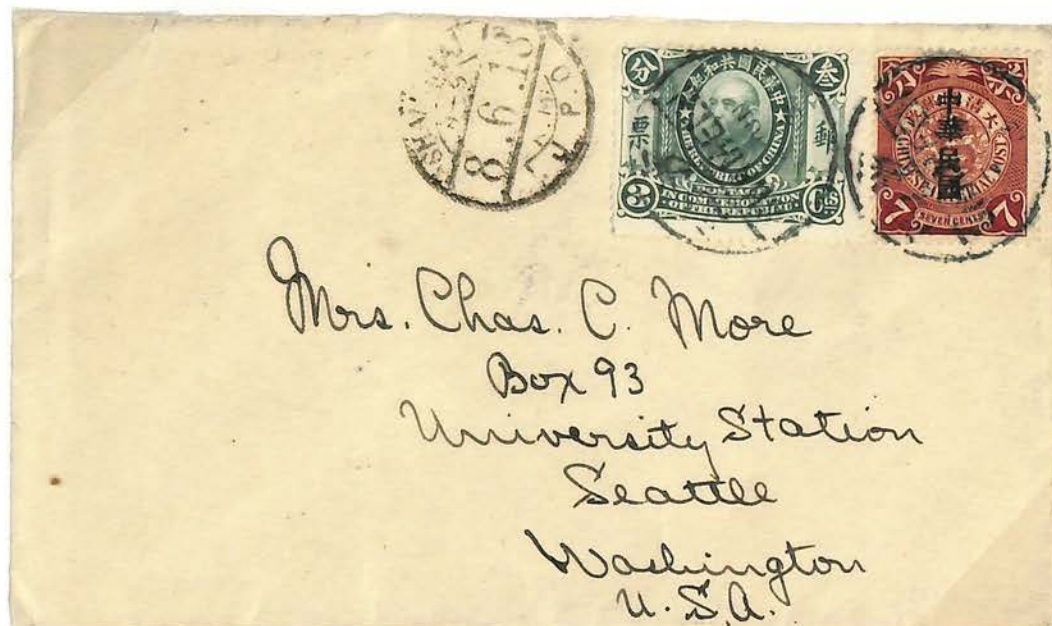 8.6.13
叁分
中華民國共和紀念
郵票
THE REPUBLIC OF CHINA
POSTAGE
IN COMMEMORATION
OF THE REPUBLIC
3 Cts
中華民國
CHINESE IMPERIAL POST
7 SEVEN CENTS 7
Mrs. Chas. C. More
Box 93
University Station
Seattle
Washington
U.S.A.